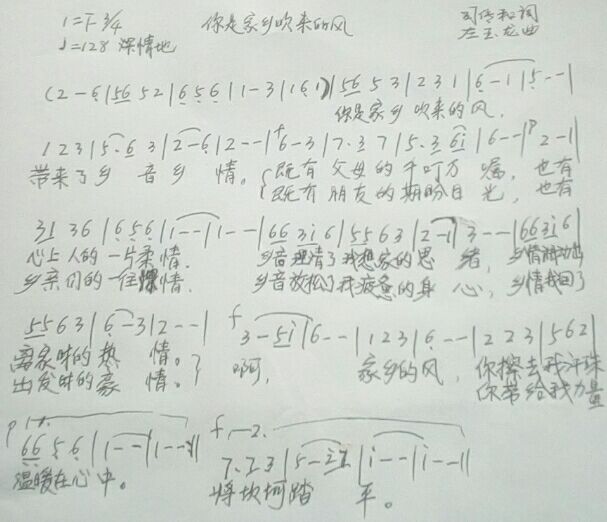 1=F 3/4 你是家乡吹来的风 司传和词
♩=128 深情地 左玉龙曲
(2-6|56 52|656|1-3|161)|56 53|231|6-1|5--|
你是家乡吹来的风,
123|5·63|2-6|2--|6-3|7·37|5·3 6i|6--|2-1|
带来了乡音乡情。{既有父母的千叮万嘱,也有
既有朋友的期盼目光,也有
31 36|656|1--|1--|66 3i6|5563|2-1|3--|66 3i6|
心上人的一片柔情。乡音理清了我想家的思绪,乡情
乡亲们的一往深情。乡音放松了我疲惫的身心,乡情
5563|6-3|2--|f 3-5i|6--|123|6--|223|562|
离家时的热情。啊,家乡的风,你擦去我汗珠
出发时的豪情。}你带给我力量
p 1. f 2.
66 56|1--|1--| 7·23|5-|i--|i--||
温暖在心中。将坎坷踏平。